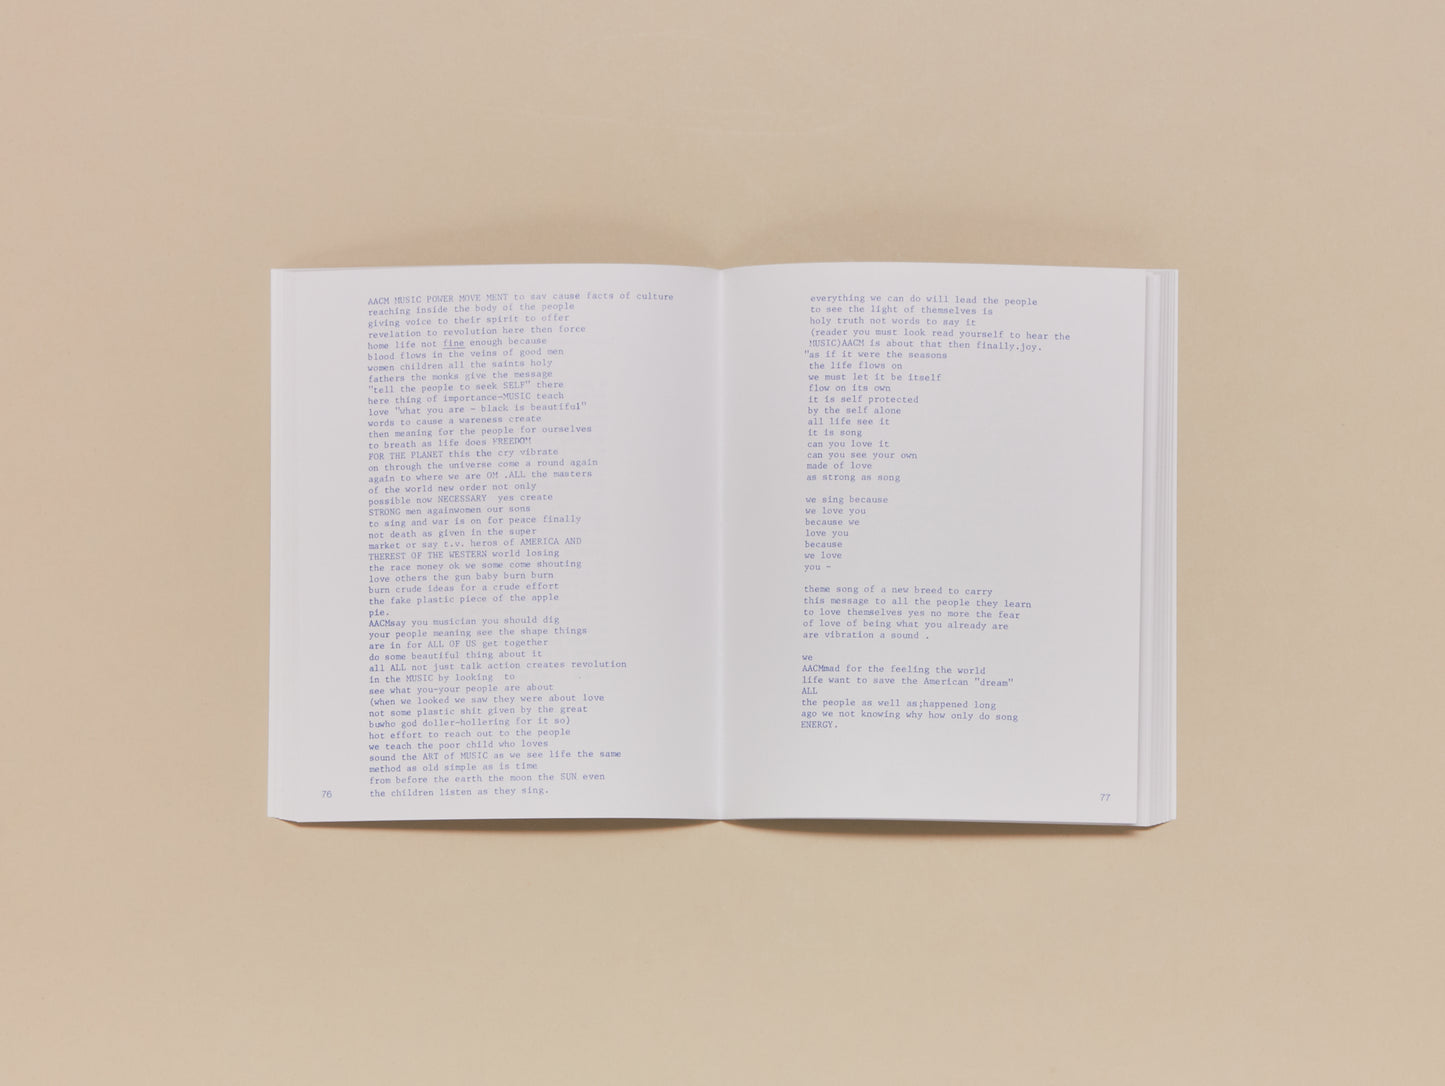 AACM MUSIC POWER MOVE MENT to sav cause facts of culture
reaching inside the body of the people
giving voice to their spirit to offer
revelation to revolution here then force
home life not fine enough because
blood flows in the veins of good men
women children all the saints holy
fathers the monks give the message
"tell the people to seek SELF" there
here thing of importance-MUSIC teach
love "what you are - black is beautiful"
words to cause a wareness create
then meaning for the people for ourselves
to breath as life does FREEDOM
FOR THE PLANET this the cry vibrate
on through the universe come a round again
again to where we are OM .ALL the masters
of the world new order not only
possible now NECESSARY yes create
STRONG men againwomen our sons
to sing and war is on for peace finally
not death as given in the super
market or say t.v. heros of AMERICA AND
THEREST OF THE WESTERN world losing
the race money ok we some come shouting
love others the gun baby burn burn
burn crude ideas for a crude effort
the fake plastic piece of the apple
pie.
AACMsay you musician you should dig
your people meaning see the shape things
are in for ALL OF US get together
do some beautiful thing about it
all ALL not just talk action creates revolution
in the MUSIC by looking to
see what you-your people are about
(when we looked we saw they were about love
not some plastic shit given by the great
buwho god doller-hollering for it so)
hot effort to reach out to the people
we teach the poor child who loves
sound the ART of MUSIC as we see life the same
method as old simple as is time
from before the earth the moon the SUN even
the children listen as they sing.
76
everything we can do will lead the people
to see the light of themselves is
holy truth not words to say it
(reader you must look read yourself to hear the
MUSIC)AACM is about that then finally.joy.
"as if it were the seasons
the life flows on
we must let it be itself
flow on its own
it is self protected
by the self alone
all life see it
it is song
can you love it
can you see your own
made of love
as strong as song
we sing because
we love you
because we
love you
because
we love
you -
theme song of a new breed to carry
this message to all the people they learn
to love themselves yes no more the fear
of love of being what you already are
are vibration a sound .
we
AACMmad for the feeling the world
life want to save the American "dream"
ALL
the people as well as;happened long
ago we not knowing why how only do song
ENERGY.
77